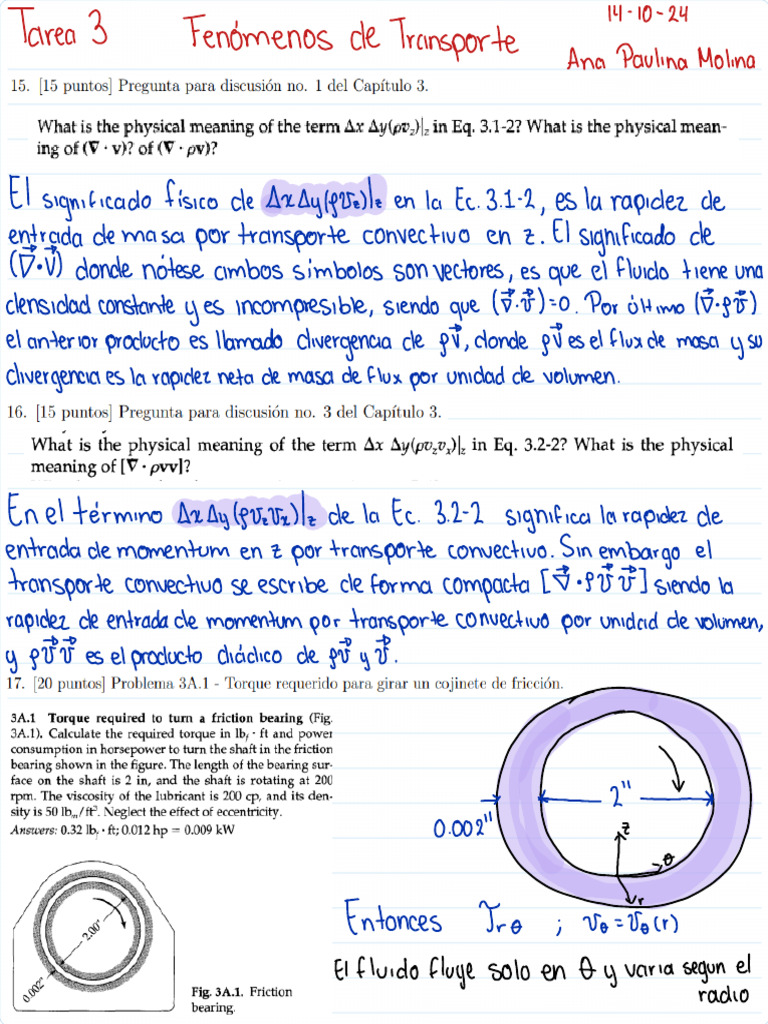 Tarea 3 Fenómenos de Transporte
14-10-24
Ana Paulina Molina
15. [15 puntos] Pregunta para discusión no. 1 del Capítulo 3.
What is the physical meaning of the term Δx Δy(ρv_z)|_z in Eq. 3.1-2? What is the physical mean-
ing of (∇ · v)? of (∇ · ρv)?
El significado físico de ΔxΔy(ρv_z)|_z en la Ec. 3.1-2, es la rapidez de
entrada de masa por transporte convectivo en z. El significado de
(∇⃗·v⃗) donde nótese ambos símbolos son vectores, es que el fluido tiene una
densidad constante y es incompresible, siendo que (∇⃗·v⃗)=0. Por último (∇⃗·ρv⃗)
el anterior producto es llamado divergencia de ρv⃗, donde ρv⃗ es el flux de masa y su
divergencia es la rapidez neta de masa de flux por unidad de volumen.
16. [15 puntos] Pregunta para discusión no. 3 del Capítulo 3.
What is the physical meaning of the term Δx Δy(ρv_zv_x)|_z in Eq. 3.2-2? What is the physical
meaning of [∇ · ρvv]?
En el término ΔxΔy(ρv_zv_x)|_z de la Ec. 3.2-2 significa la rapidez de
entrada de momentum en z por transporte convectivo. Sin embargo el
transporte convectivo se escribe de forma compacta [∇⃗·ρv⃗v⃗] siendo la
rapidez de entrada de momentum por transporte convectivo por unidad de volumen,
y ρv⃗v⃗ es el producto diádico de ρv⃗ y v⃗.
17. [20 puntos] Problema 3A.1 - Torque requerido para girar un cojinete de fricción.
3A.1 Torque required to turn a friction bearing (Fig.
3A.1). Calculate the required torque in lb_f · ft and power
consumption in horsepower to turn the shaft in the friction
bearing shown in the figure. The length of the bearing sur-
face on the shaft is 2 in, and the shaft is rotating at 200
rpm. The viscosity of the lubricant is 200 cp, and its den-
sity is 50 lb_m/ft³. Neglect the effect of eccentricity.
Answers: 0.32 lb_f · ft; 0.012 hp = 0.009 kW
2"
0.002"
z
θ
r
2.00"
0.002"
Fig. 3A.1. Friction
bearing.
Entonces τ_rθ ; v_θ = v_θ(r)
El fluido fluye solo en θ y varia segun el
radio